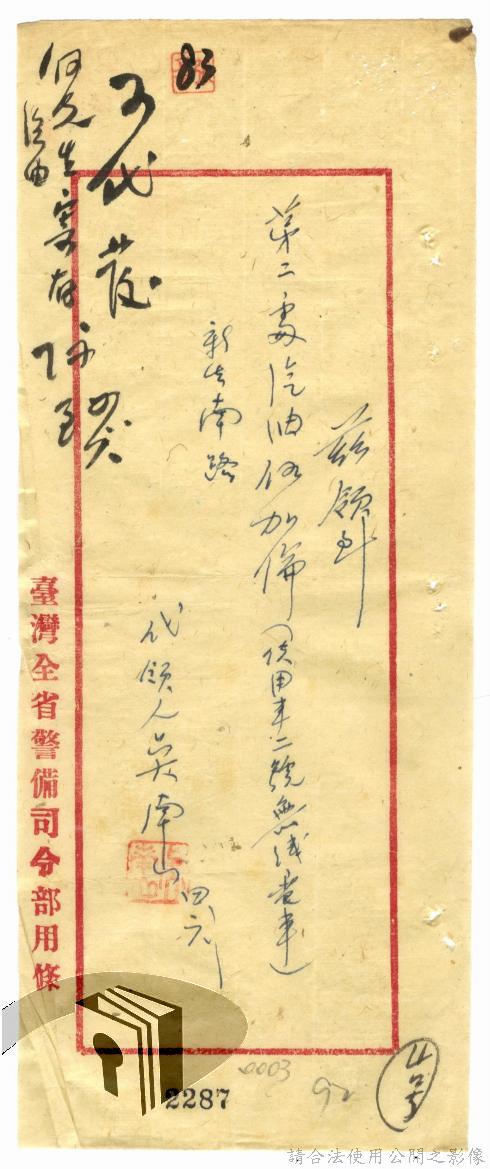 茲領到
第二處汽油伍加倫(供用車二號無线電車)
新生南路
代領人吳南山 四、六
可代發
何先生寄存
汽油
臺灣全省警備司令部用條
83
4号
92
0003
2287
請合法使用公開之影像